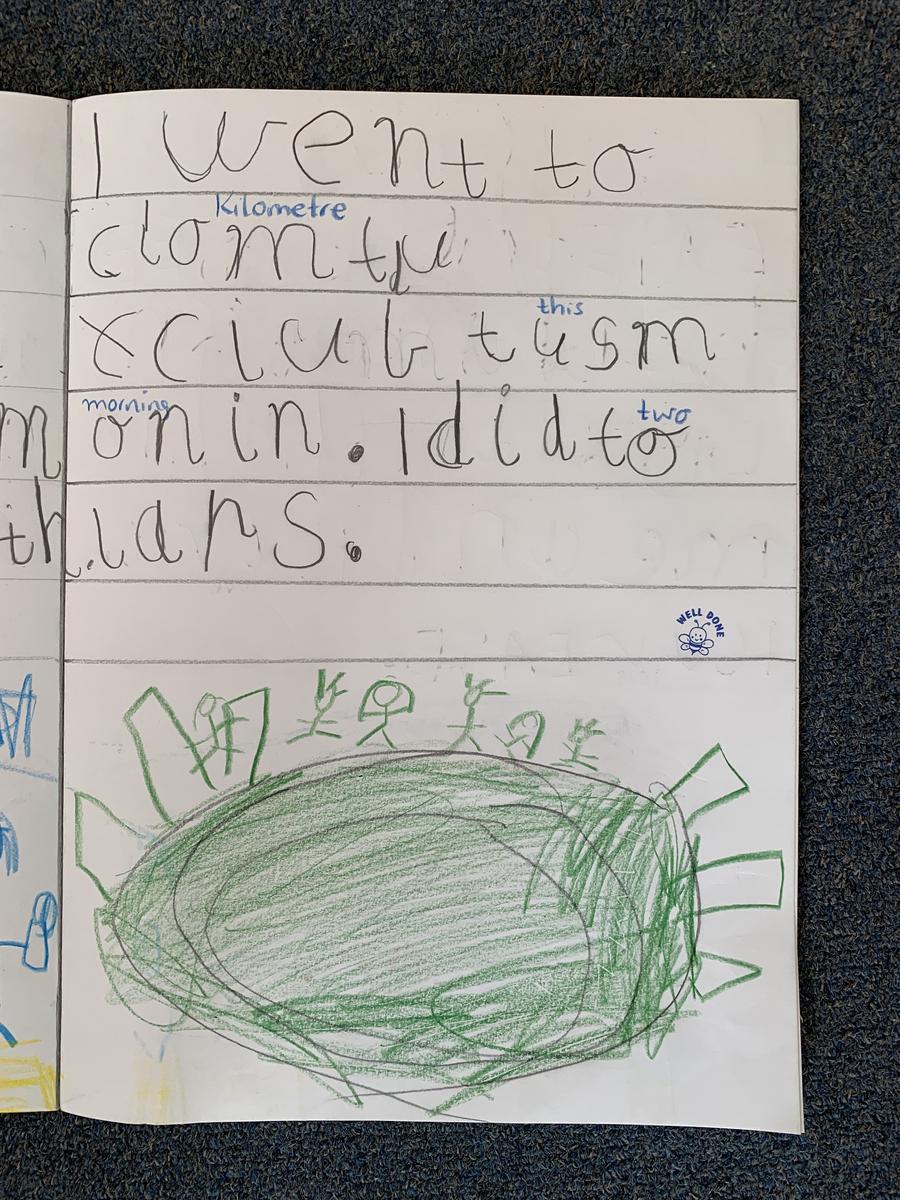 I went to
Kilometre
clomtu
this
xciub tusm
morning two
m onin. I did to
th iars.
WELL DONE